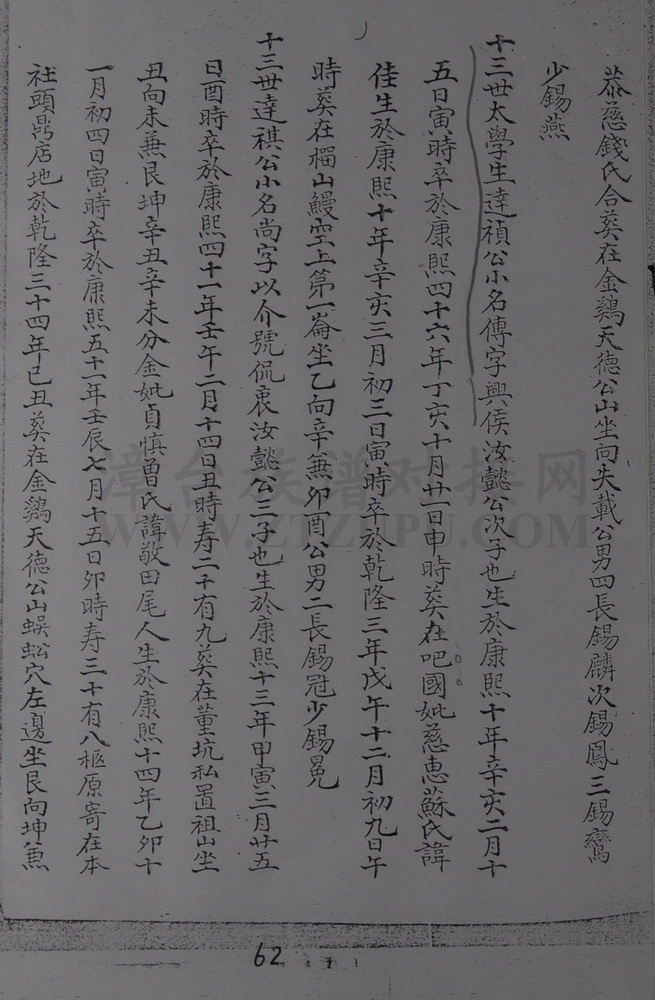 恭慈錢氏合葬在金鷄天德公山坐向失載公男四長錫麟次錫鳳三錫鸞
少錫燕
十三世太學生達禎公小名傳字興侯汝懿公次子也生於康熙十年辛亥二月十
五日寅時卒於康熙四十六年丁亥十月廿一日申時葬在吧國妣慈惠蘇氏諱
佳生於康熙十年辛亥三月初三日寅時卒於乾隆三年戊午十二月初九日午
時葬在榴山鰻空上第一崙坐乙向辛兼卯酉公男二長錫冠少錫冕
十三世達祺公小名尚字以介號侃衷汝懿公三子也生於康熙十三年甲寅三月廿五
日酉時卒於康熙四十一年壬午二月十四日丑時寿二十有九葬在董坑私置祖山坐
丑向未兼艮坤辛丑辛未分金妣貞慎曾氏諱敬田尾人生於康熙十四年乙卯十
一月初四日寅時卒於康熙五十一年壬辰七月十五日卯時寿三十有八柩原寄在本
社頭鼎店地於乾隆三十四年己丑葬在金鷄天德公山蜈蚣穴左邊坐艮向坤兼
漳台族谱对接网
WWW.ZTZUPU.COM
62